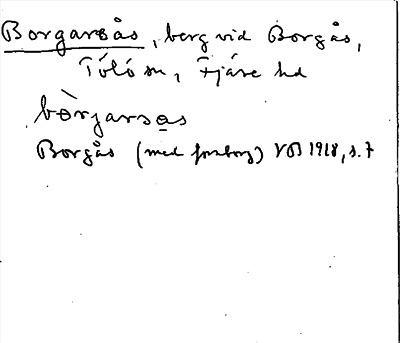 Borgarsås, berg vid Borgås,
Tölö sn, Fjäre hd
bòrjarsas
Borgås (med fornborg) VB 1918, s. 7